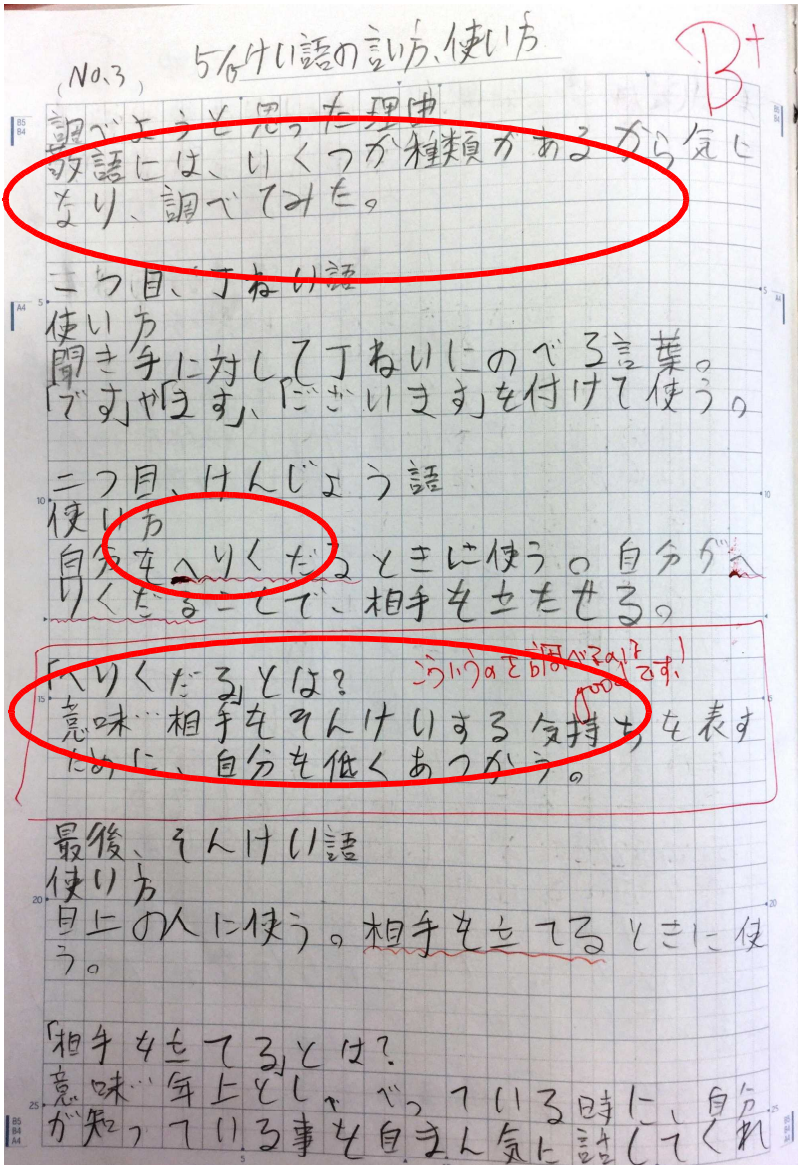 (No.3)
けい語の言い方、使い方
B+
調べようと思った理由
敬語には、いくつか種類があるから気に
なり、調べてみた。
二つ目、丁ねい語
使い方
聞き手に対して丁ねいにのべる言葉。
「です」や「ます」、「ございます」を付けて使う。
二つ目、けんじょう語
使い方
自分をへりくだるときに使う。自分がへ
りくだることで、相手を立たせる。
「へりくだる」とは?
こういうのを調べるのは
goodです!
意味…相手をそんけいする気持ちを表す
ために、自分を低くあつかう。
最後、そんけい語
使い方
目上の人に使う。相手を立てるときに使
う。
「相手を立てる」とは?
意味…年上としゃべっている時に、自分
が知っている事を自まん気に話してくれ